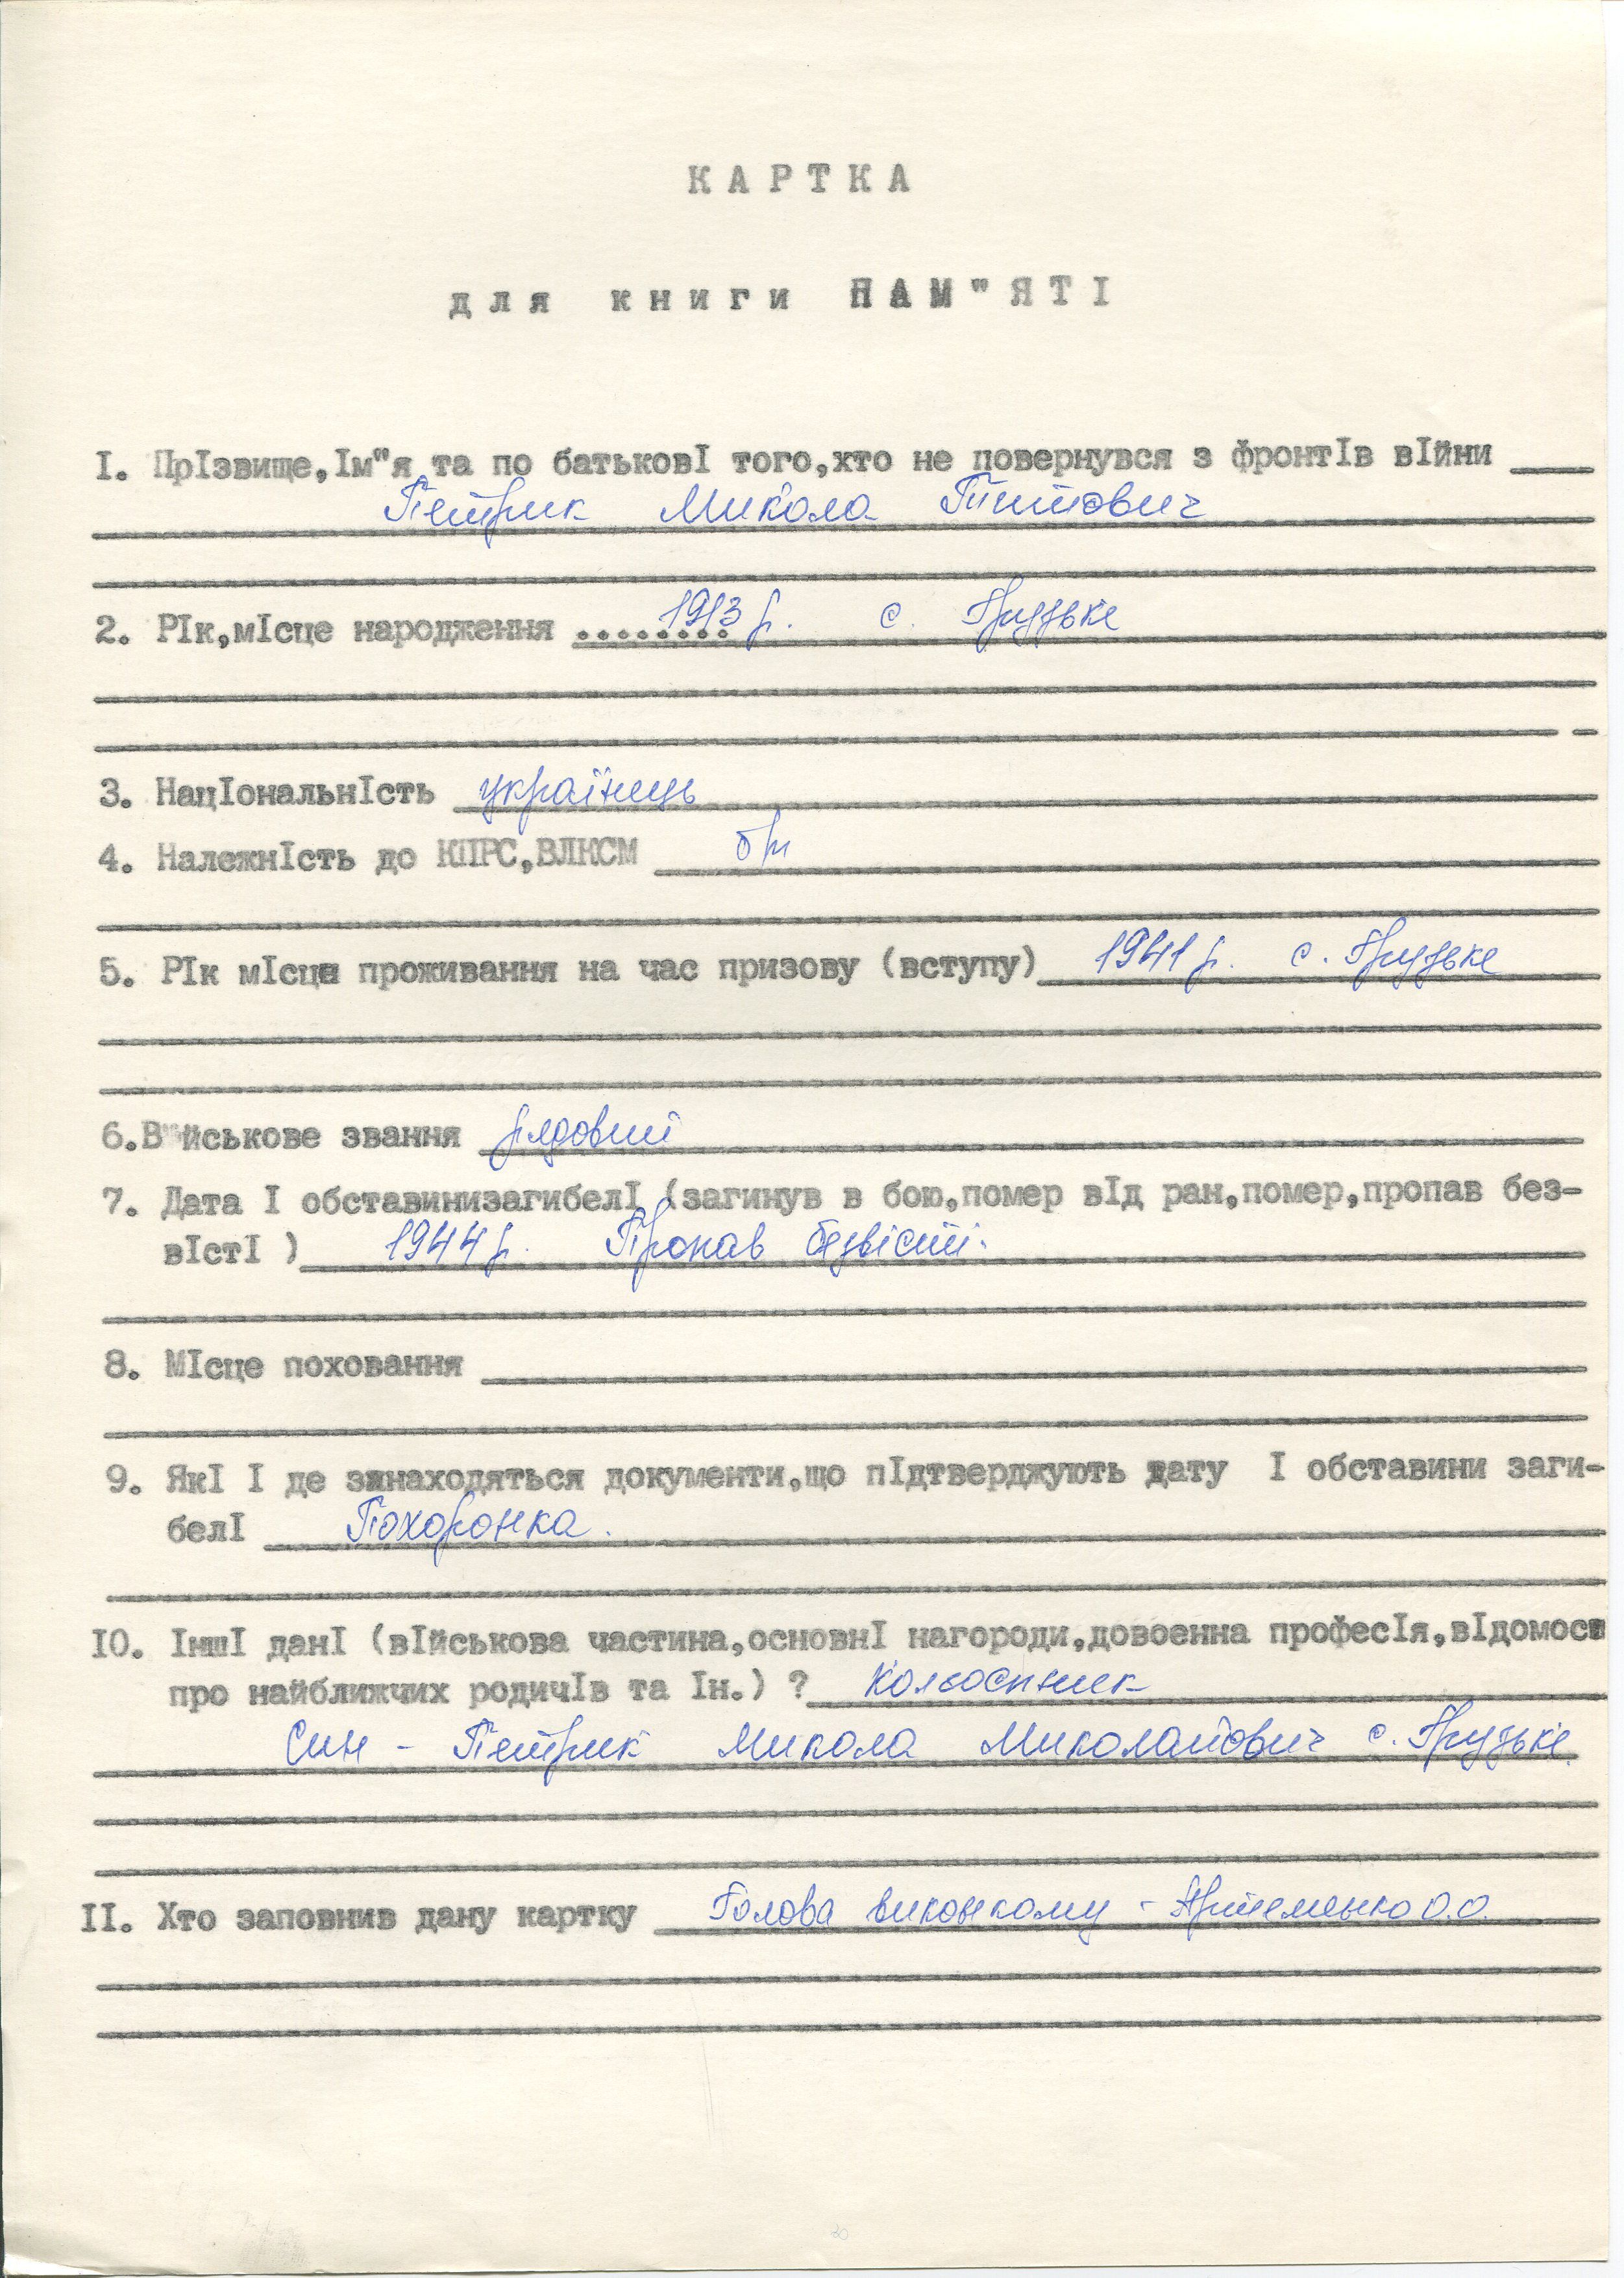 КАРТКА
для книги ПАМ"ЯТІ
I. ПрІзвище,Ім"я та по батьковІ того,хто не повернувся з фронтІв вІйни
Петрик Микола Титович
2. РІк,мІсце народження ........ 1913 р. с. Грузьке
3. НацІональнІсть українець
4. НалежнІсть до КПРС,ВЛКСМ б/п
5. РІк мІсце проживання на час призову (вступу) 1941 р. с. Грузьке
6.В"йськове звання рядовий
7. Дата І обставинизагибелІ (загинув в бою,помер вІд ран,помер,пропав без-
вІстІ ) 1944 р. Пропав безвісті.
8. МІсце поховання
9. ЯкІ І де знаходяться документи,що пІдтверджують дату І обставини заги-
белІ Похоронка.
IO. ІншІ данІ (вІйськова частина,основнІ нагороди,довоенна професІя,вІдомост
про найближчих родичІв та Ін.) ? Колгоспник
Син - Петрик Микола Миколайович с. Грузьке.
II. Хто заповнив дану картку Голова виконкому - Артеменко О.О.
20